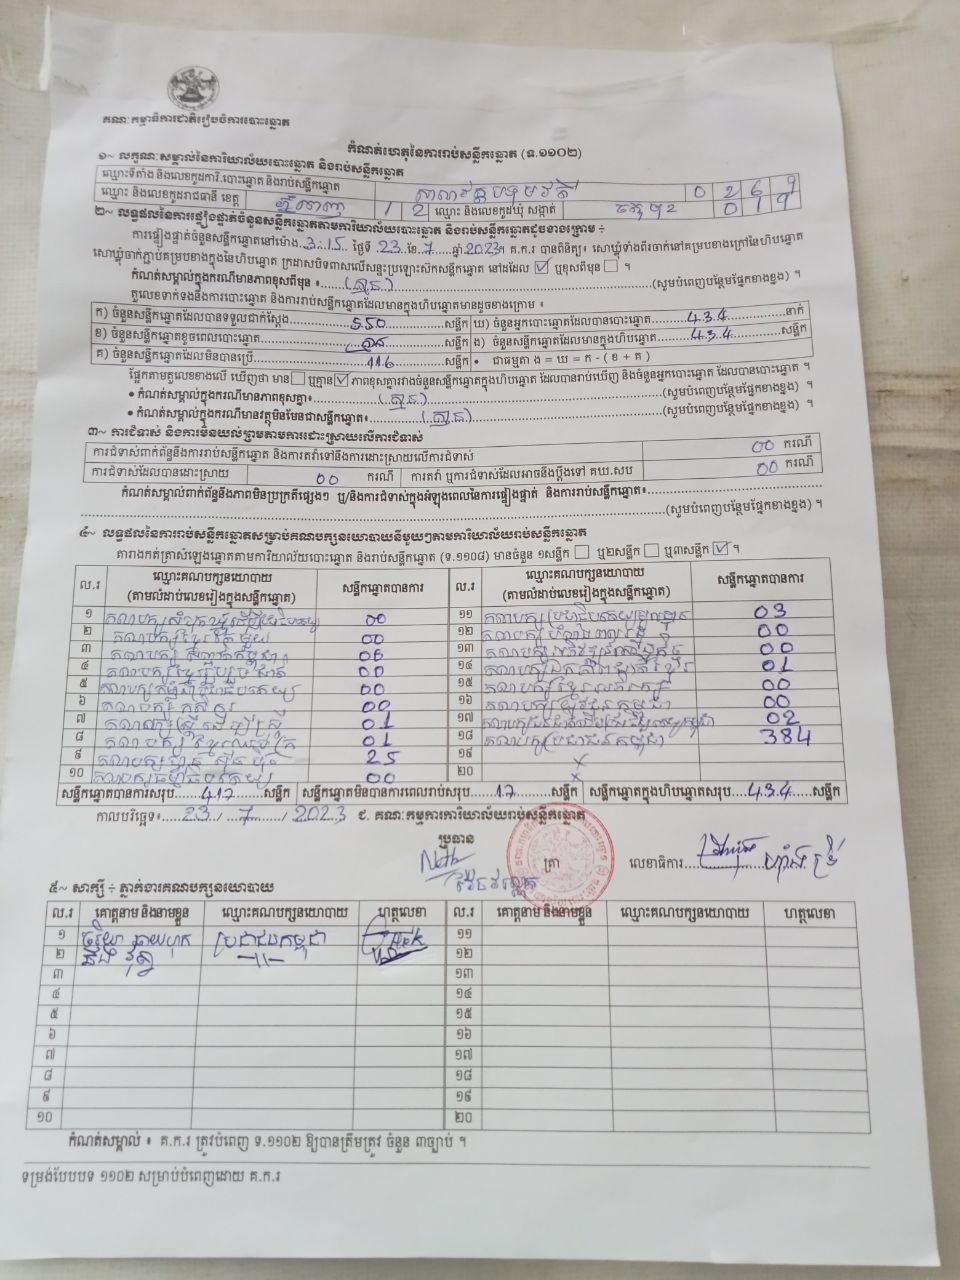 គណៈកម្មាធិការជាតិរៀបចំការបោះឆ្នោត
កំណត់ហេតុនៃការរាប់សន្លឹកឆ្នោត (ទ.១១០២)
១~ លក្ខណៈសម្គាល់នៃការិយាល័យបោះឆ្នោត និងរាប់សន្លឹកឆ្នោត
ឈ្មោះទីតាំង និងលេខកូដការិ.បោះឆ្នោត និងរាប់សន្លឹកឆ្នោត 0 2 6 9
ឈ្មោះ និងលេខកូដរាជធានី ខេត្ត ភ្នំពេញ 1 2 ឈ្មោះ និងលេខកូដឃុំ សង្កាត់ 0 1
២~ លទ្ធផលនៃការផ្ទៀងផ្ទាត់ចំនួនសន្លឹកឆ្នោតតាមការិយាល័យបោះឆ្នោត និងរាប់សន្លឹកឆ្នោតដូចខាងក្រោម ÷
ការផ្ទៀងផ្ទាត់ចំនួនសន្លឹកឆ្នោតនៅម៉ោង 3:15 ថ្ងៃទី 23 ខែ 7 ឆ្នាំ 2023។ គ.ក.រ បានពិនិត្យ៖ សោឃ្មុំទាំងពីរចាក់នៅគម្របខាងក្រៅនៃហិបឆ្នោត
សោឃ្មុំចាក់ភ្ជាប់គម្របខាងក្នុងនៃហិបឆ្នោត ក្រដាសបិទពាសលើសន្ទះប្រឡោះស៊កសន្លឹកឆ្នោត នៅដដែល ☑ ឬខុសពីមុន ☐ ។
កំណត់សម្គាល់ក្នុងករណីមានភាពខុសពីមុន ៖ (គ្មាន) (សូមបំពេញបន្ថែមផ្នែកខាងខ្នង) ។
តួលេខទាក់ទងនឹងការបោះឆ្នោត និងការរាប់សន្លឹកឆ្នោតដែលមានក្នុងហិបឆ្នោតមានដូចខាងក្រោម ៖
ក) ចំនួនសន្លឹកឆ្នោតដែលបានទទួលជាក់ស្តែង 550 សន្លឹក ឃ) ចំនួនអ្នកបោះឆ្នោតដែលបានបោះឆ្នោត 434 នាក់
ខ) ចំនួនសន្លឹកឆ្នោតខូចពេលបោះឆ្នោត គ្មាន សន្លឹក ង) ចំនួនសន្លឹកឆ្នោតដែលមានក្នុងហិបឆ្នោត 434 សន្លឹក
គ) ចំនួនសន្លឹកឆ្នោតដែលមិនបានប្រើ 116 សន្លឹក • ជាធម្មតា ង = ឃ = ក - ( ខ + គ )
ផ្អែកតាមតួលេខខាងលើ ឃើញថា មាន ☐ ឬគ្មាន ☑ ភាពខុសគ្នារវាងចំនួនសន្លឹកឆ្នោតក្នុងហិបឆ្នោត ដែលបានរាប់ឃើញ និងចំនួនអ្នកបោះឆ្នោត ដែលបានបោះឆ្នោត ។
• កំណត់សម្គាល់ក្នុងករណីមានភាពខុសគ្នា៖ (គ្មាន) (សូមបំពេញបន្ថែមផ្នែកខាងខ្នង) ។
• កំណត់សម្គាល់ក្នុងករណីមានវត្ថុមិនមែនជាសន្លឹកឆ្នោត៖ (គ្មាន) (សូមបំពេញបន្ថែមផ្នែកខាងខ្នង) ។
៣~ ការជំទាស់ និងការមិនយល់ព្រមតាមការដោះស្រាយលើការជំទាស់
ការជំទាស់ពាក់ព័ន្ធនឹងការរាប់សន្លឹកឆ្នោត និងការតវ៉ាទៅនឹងការដោះស្រាយលើការជំទាស់ 00 ករណី
ការជំទាស់ដែលបានដោះស្រាយ 00 ករណី ការតវ៉ា ឬការជំទាស់ដែលអាចនឹងប្តឹងទៅ គឃ.សប 00 ករណី
កំណត់សម្គាល់ពាក់ព័ន្ធនឹងភាពមិនប្រក្រតីផ្សេងៗ ឬ/និងការជំទាស់ក្នុងអំឡុងពេលនៃការផ្ទៀងផ្ទាត់ និងការរាប់សន្លឹកឆ្នោត៖
(សូមបំពេញបន្ថែមផ្នែកខាងខ្នង) ។
៤~ លទ្ធផលនៃការរាប់សន្លឹកឆ្នោតសម្រាប់គណបក្សនយោបាយនីមួយៗតាមការិយាល័យរាប់សន្លឹកឆ្នោត
តារាងកត់ត្រាសំឡេងឆ្នោតតាមការិយាល័យបោះឆ្នោត និងរាប់សន្លឹកឆ្នោត (ទ.១១០៨) មានចំនួន ១សន្លឹក ☐ ឬ២សន្លឹក ☐ ឬ៣សន្លឹក ☑ ។
ល.រ ឈ្មោះគណបក្សនយោបាយ (តាមលំដាប់លេខរៀងក្នុងសន្លឹកឆ្នោត) សន្លឹកឆ្នោតបានការ ល.រ ឈ្មោះគណបក្សនយោបាយ (តាមលំដាប់លេខរៀងក្នុងសន្លឹកឆ្នោត) សន្លឹកឆ្នោតបានការ
១ គណបក្ស 00 ១១ គណបក្ស 03
២ គណបក្សខ្មែរ 00 ១២ គណបក្ស 00
៣ គណបក្ស 06 ១៣ គណបក្ស 00
៤ គណបក្សខ្មែររួបរួមជាតិ 00 ១៤ គណបក្សឯកភាពជាតិខ្មែរ 01
៥ គណបក្សកម្ពុជា 00 ១៥ គណបក្សខ្មែរអភិរក្ស 00
៦ គណបក្សកសិករ 00 ១៦ គណបក្សយុវជនកម្ពុជា 00
៧ គណបក្សស្ត្រីដើម្បីស្ត្រី 01 ១៧ គណបក្ស 02
៨ គណបក្ស 01 ១៨ គណបក្សប្រជាជនកម្ពុជា 384
៩ គណបក្សហ្វ៊ុនស៊ិនប៉ិច 25 ១៩ x
១០ គណបក្សធម្មាធិបតេយ្យ 00 ២០ x
សន្លឹកឆ្នោតបានការសរុប 417 សន្លឹក សន្លឹកឆ្នោតមិនបានការពេលរាប់សរុប 17 សន្លឹក សន្លឹកឆ្នោតក្នុងហិបឆ្នោតសរុប 434 សន្លឹក
កាលបរិច្ឆេទ៖ 23 / 7 / 2023 ជ. គណៈកម្មការការិយាល័យរាប់សន្លឹកឆ្នោត
ប្រធាន
ត្រា
លេខាធិការ
៥~ សាក្សី ÷ ភ្នាក់ងារគណបក្សនយោបាយ
ល.រ គោត្តនាម និងនាមខ្លួន ឈ្មោះគណបក្សនយោបាយ ហត្ថលេខា ល.រ គោត្តនាម និងនាមខ្លួន ឈ្មោះគណបក្សនយោបាយ ហត្ថលេខា
១ ប្រជាជនកម្ពុជា ១១
២ —〃— ១២
៣ ១៣
៤ ១៤
៥ ១៥
៦ ១៦
៧ ១៧
៨ ១៨
៩ ១៩
១០ ២០
កំណត់សម្គាល់ ៖ គ.ក.រ ត្រូវបំពេញ ទ.១១០២ ឱ្យបានត្រឹមត្រូវ ចំនួន ៣ច្បាប់ ។
ទម្រង់បែបបទ ១១០២ សម្រាប់បំពេញដោយ គ.ក.រ